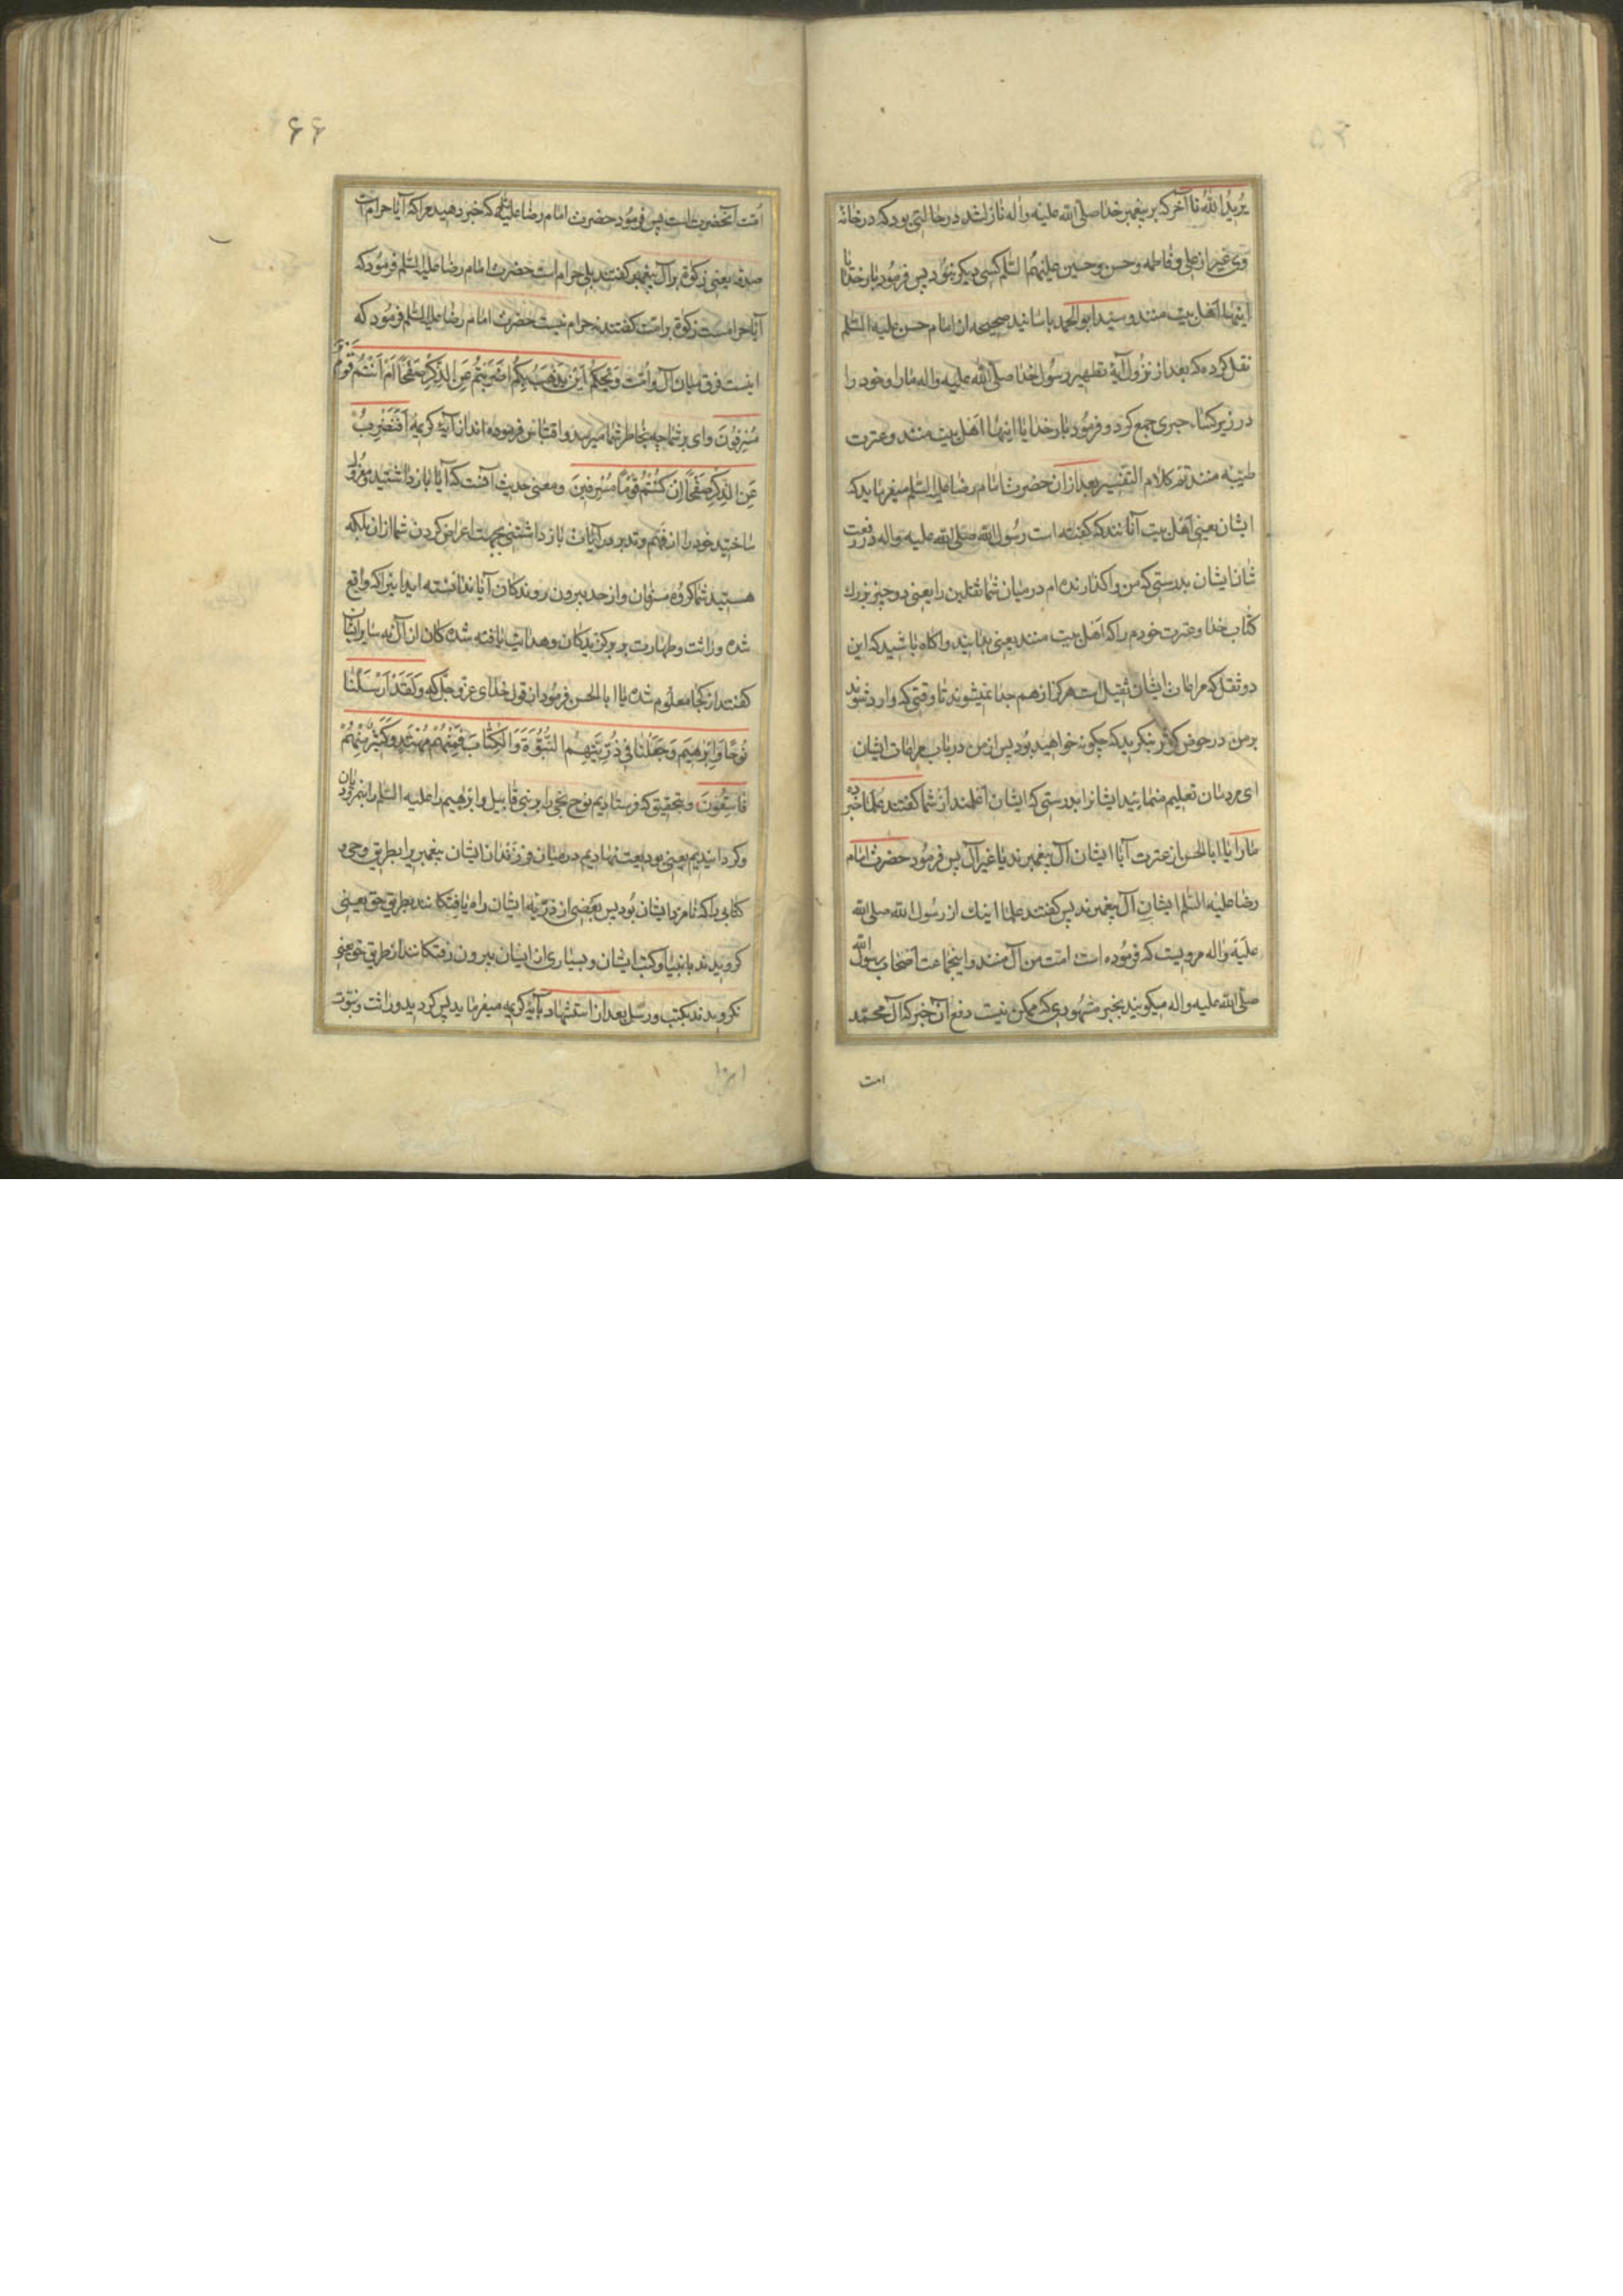 یُریدُ اللهُ تا آخر که بر پیغمبر خدا صلّی الله علیه واله نازل شد در حالتی بود که در خانهٔ
وی غیر از علی و فاطمه و حسن و حسین علیهم السّلم کسی دیگر نبود پس فرمود بار خدایا
اینها اهل بیت منند و سید ابو الحمد باسانید صحیحه از امام حسن علیه السّلم
نقل کرده که بعد از نزول آیهٔ تطهیر رسول خدا صلّی الله علیه واله ما را و خود را
در زیر کساء خیبری جمع کرد و فرمود بار خدایا اینها اهل بیت منند و عترت
طیّبه منند تمّ کلام التفسیر بعد از آن حضرت امام رضا علیه السّلم میفرماید که
ایشان یعنی اهل بیت آنانند که گفته است رسول الله صلّی الله علیه واله در رفعت
شان ایشان بدرستی که من واگذارنده‌ام در میان شما ثقلین را یعنی دو چیز بزرک
کتاب خدا و عترت خودم را که اهل بیت منند یعنی بدانید و اگاه باشید که این
دو ثقل که مراعات ایشان ثقیل است هرگز از هم جدا نمیشوند تا وقتی که وارد شوند
بر من در حوض کوثر بنگرید که چگونه خواهید بود پس از من در باب مراعات ایشان
ای مردمان تعلیم منمایید ایشانرا بدرستی که ایشان اعلمند از شما گفتند علما خبر ده
ما را یا ابا الحسن از عترت آیا ایشان آل پیغمبرند یا غیر آل پس فرمود حضرت امام
رضا علیه السّلم ایشان آل پیغمبرند پس گفتند علما اینك از رسول الله صلی الله
علیه واله مرویست که فرموده است امّت من آل منند و اینجماعت اصحاب رسول الله
صلّی الله علیه واله میگویند بخبر مشهوری که ممکن نیست دفع آن خبر که آل محمّد
امت
۶۶
اُمّت آنحضرت است پس فرمود حضرت امام رضا علیه السلم که خبر دهید مرا که آیا حرام است
صدقه یعنی زکوة بر آل پیغمبر گفتند بلی حرام است حضرت امام رضا علیه السّلم فرمود که
آیا حرامست زکوة بر امّت گفتند نه حرام نیست حضرت امام رضا علیه السّلم فرمود که
اینست فرق میان آل و امّت وَیْحَکُمْ اَیْنَ یُذْهَبُ بِکُمْ اَضَرَبْتُمْ عَنِ الذِّکْرِ صَفْحًا اَمْ اَنْتُمْ قَوْمٌ
مُسْرِفُونَ وای بر شما چه بخاطر شما میرسد و اقتباس فرموده‌اند از آیهٔ کریمه اَفَنَضْرِبُ
عَنِ الذِّکْرِ صَفْحًا اِنْ کُنْتُمْ قَوْمًا مُسْرِفِینَ و معنی حدیث آنست که آیا باز داشتید و معزول
ساختید خود را از فهم و تدبر در آیات باز داشتنی بجهت اعراض کردن شما از آن بلکه
هستید شما گروه مسرفان و از حد بیرون روندکان آیا ندانسته‌اید اینرا که واقع
شده وراثت و طهارت بر برگزیدکان و هدایت یافته شدکان از آل نه سایر ایشان
گفتند از کجا معلوم شده یا ابا الحسن فرمود از قول خدای عزّ و جلّ که وَلَقَدْ اَرْسَلْنَا
نُوحًا وَاِبْرٰهِیمَ وَجَعَلْنَا فِی ذُرِّیَّتِهِمَا النُّبُوَّةَ وَالْکِتَابَ فَمِنْهُمْ مُهْتَدٍ وَکَثِیرٌ مِنْهُمْ
فَاسِقُونَ و بتحقیق که فرستادیم نوح نجی را به بنی قابیل و ابرهیم را علیه السّلم را بنمرودیان
و گردانیدیم یعنی بودیعت نهادیم در میان فرزندان ایشان پیغمبریرا بطریق وحی و
کتابی را که نامزد ایشان بود پس بعضی از ذریّه ایشان راه یافتگانند بطریق حق یعنی
گرویدند بانبیا و کتب ایشان و بسیاری از ایشان بیرون رفتگانند از طریق حق یعنی
نگرویدند بکتب و رسل بعد از استشهاد بآیهٔ کریمه میفرماید پس گردید وراثت و نبوّت